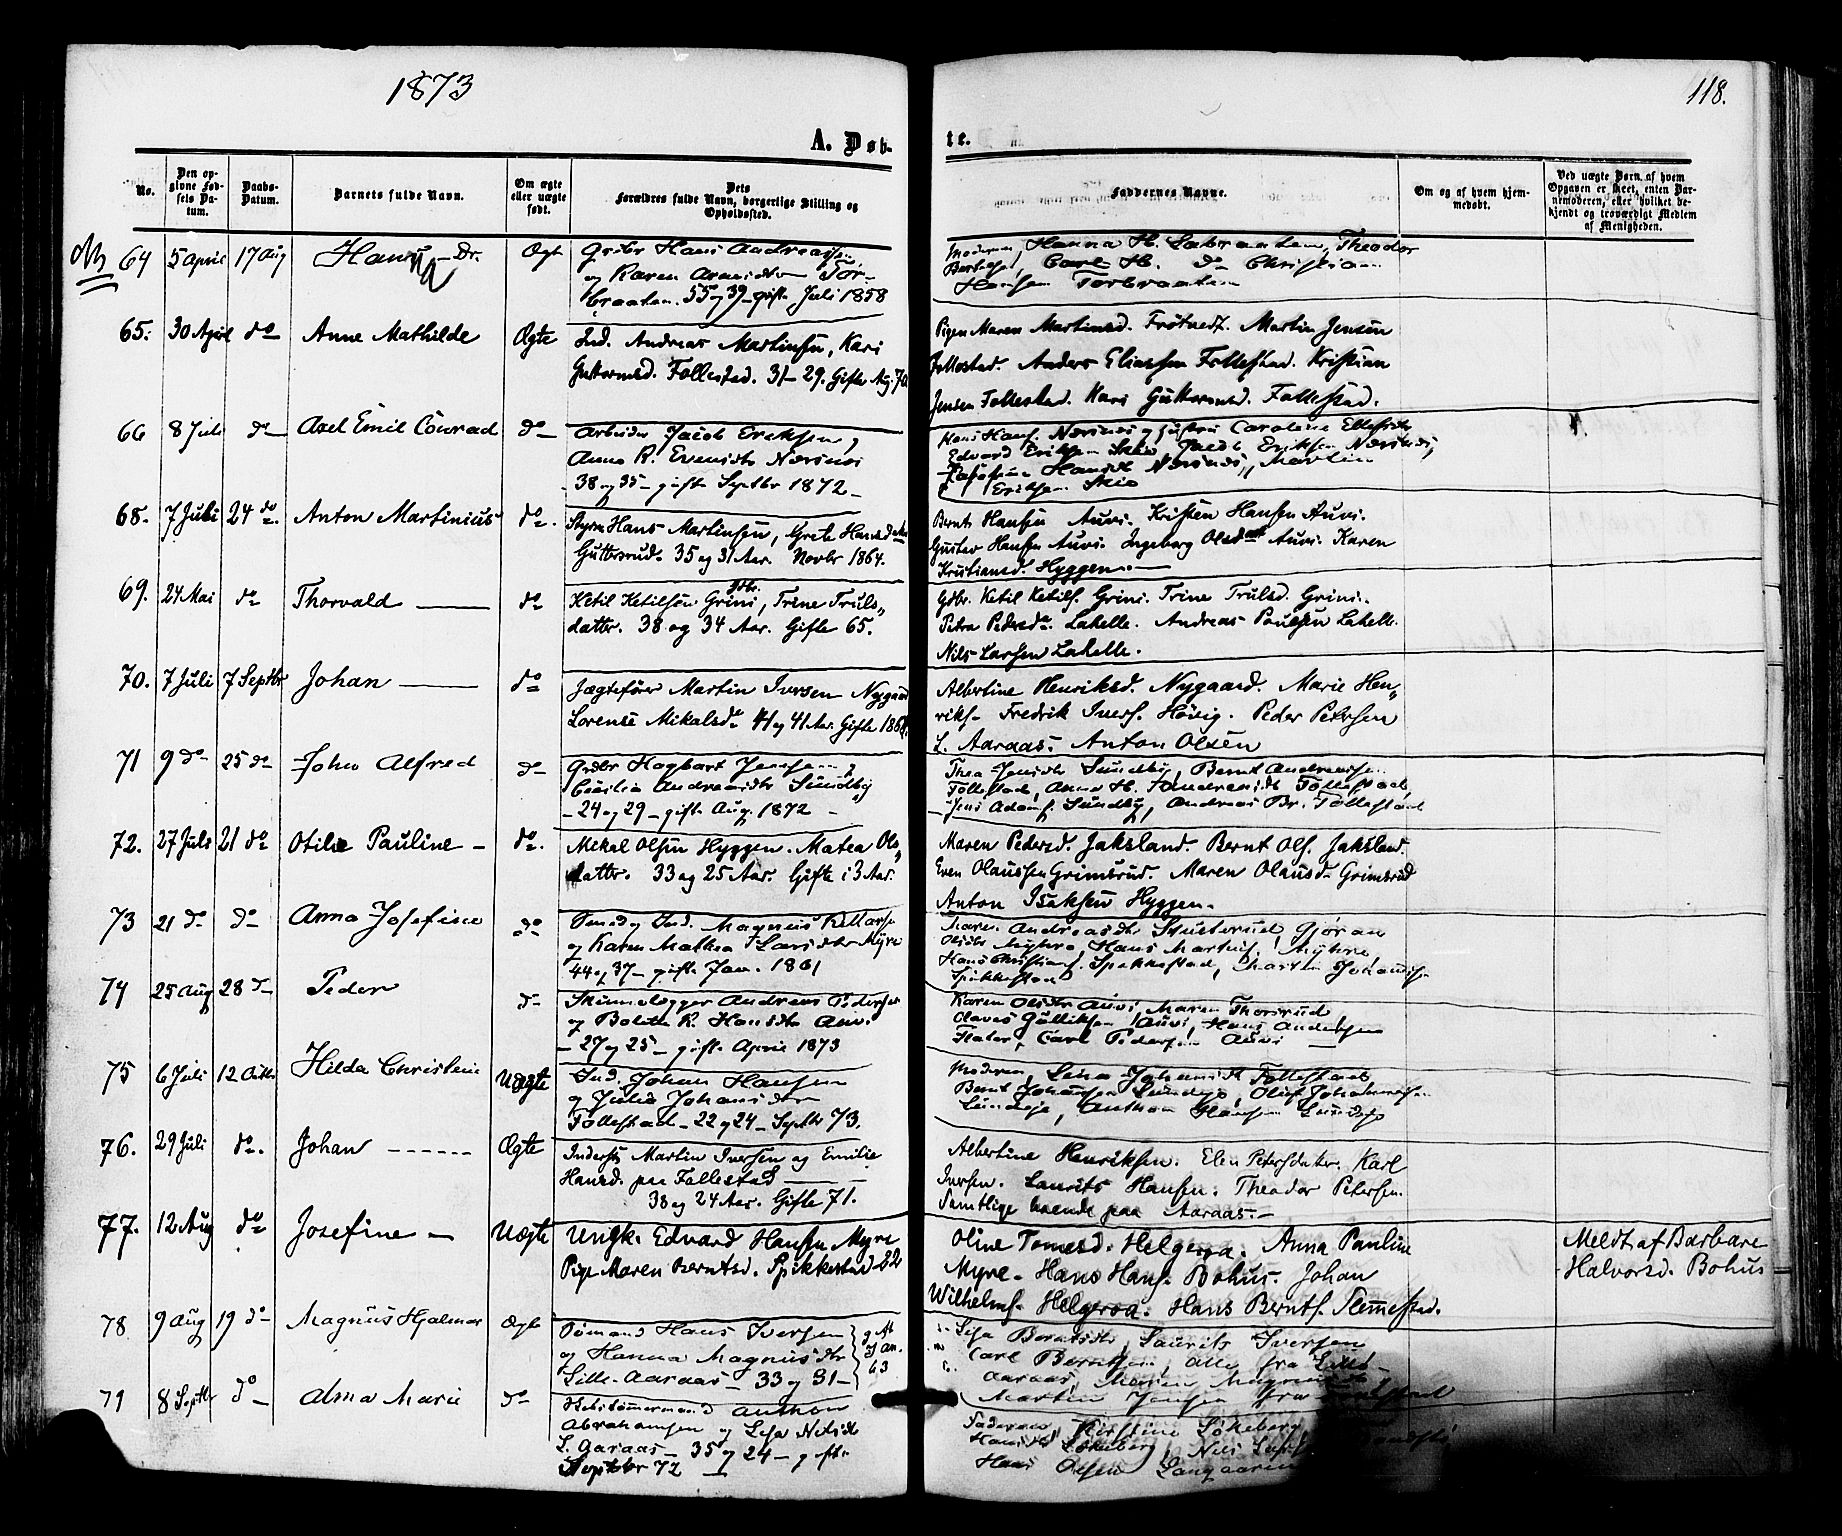 1873
118.
A. Døb-
te.
No.
Den opgivne Fødsels Datum.
Daabs-Datum.
Barnets fulde Navn.
Om ægte eller uægte født.
Dets Forældres fulde Navn, borgerlige Stilling og Opholdssted.
Faddernes Navne.
Om og af hvem hjemmedøbt.
Ved uægte Børn, af hvem Opgaven er skeet, enten Barnemoderen, eller hvilket bekjendt og troværdigt Medlem af Menigheden.
64 5 April 17 Aug
Ægt
Hans Andreassen
og Karen
55 og 39 – gift Juli 1858
Moderen Hanna H. Theodor
Carl H. do Christian
Hansen Torbraaten
65. 30 April do Anne Mathilde Ægte
Ind. Andreas Martinsen, Kari
Guttormsd. Follestad. 31 – 29. Gifte Aug. 70
Pigen Maren Martinsd. Martin Jensen
Follestad. Anders Eliassen Follestad. Kristian
Jensen Follestad. Kari Guttormsd. Follestad.
66 8 Juli do Axel Emil Conrad do
Arbeider Jacob Eriksen og
Anne K. Nærsnæs
38 og 35 – gift Septbr 1872 –
Edvard Eriksen Jacob Eriksen Nærsnæs,
Hansdt Nærsnæs, Martin
Eriksen
68. 7 Juli 24 do. Anton Martinius do.
Styrm Hans Martinsen, Grete Hansd
Guttersrud. 35 og 31 Aar. Novbr 1864.
Bernt Hansen Auvi. Kristen Hansen Auvi.
Gustav Hansen Auvi. Ingeborg Olsdatt Auvi. Karen
Kristiansd. Hyggen. –
69. 24 Mai do Thorvald – do
Gdbr.
Ketil Ketilsen Grini, Trine Truls-
datter. 38 og 34 Aar. Gifte 65.
Gdbr. Ketil Ketils. Grini. Trine Trulsd. Grini.
Petra Pedersd. Lahelle. Andreas Paulsen Lahelle.
Nils Larsen Lahelle.
70. 7 Juli 7 Septbr Johan – do
Jægtefører Martin Iversen Nygaard
Lorense Mikalsd. 41 og 41 Aar. Gifte
Albertine Henriksd. Nygaard. Marie Hen-
riks- Fredrik Ivers. Høvig. Peder Petersen
L. Aaraas. Anton Olsen
71 9 do 25 do John Alfred do
Grdbr Hagbart Jensen og
Cecilia Andreasdtr Sundby
– 24 og 29 – gift Aug. 1872 –
Thea Sundby, Bernt Andreassen
Follestad, Anne H. Andreasdt Follestad,
Jens Adams. Sundby, Andreas Br. Follestad
72. 27 Juli 21 do Otilie Pauline – do.
Mekal Olsen Hyggen. Matea Ols-
datter. 33 og 25 Aar. Gifte i 3 Aar.
Maren Pedersd. Jaksland. Bernt Ols. Jaksland.
Even Olaussen Grimsrud. Maren Olausd. Grimsrud
Anton Isaksen Hyggen.
73 21 do do Anna Josefine do
Smed og Ind. Magnus
og Karen Mathea Larsdtr Myre
44 og 37 – gift Jan. 1861
Andreasdtr Stuterud, Gjøran
Hans
Hans Christians. Spikkestad, Martin Johannes
Spikkestad
74 25 Aug 28 do Peder do
Skinnelægger Andreas Pedersen
og Bolette K. Hansdtr Auvi.
– 27 og 25 – gift April 1873
Karen Olsdtr Auvi, Maren
Gulliksen Auvi, Hans Andersen
Carl Pedersen Auvi
75 6 Juli 12 Hilda Christine Uægte
Ind. Johan Hansen
og Julia Johansdtr
Follestad – 22 og 24 – Septbr 73.
Moderen, Lina Follestad
Bernt Johansen Oluf Johannes
Anthon Hansen
76. 29 Juli do. Johan – Ægte
Inderst Martin Iversen og Emilie
Hansd. paa Follestad –
38 og 24 Aar. Gifte 71.
Albertine Henriksen. Elen Petersdatter. Karl
Iversen. Laurits Hansen. Theodor Petersen.
Samtlige boende paa Aaraas. –
77. 12 Aug do Josefine – Uægte
Ungk. Edvard Hansen Myre
Pige Maren Berntsd. Spikkestad
Oline Tomesd. Helgeroa. Anna Pauline
Myre – Hans Hans. Bohus. Johan
Wilhelms. Helgeroa. Hans Bernts. Slemmestad.
Meldt af Barbare
Halvorsd. Bohus
78 9 Aug 19 do Magnus Hjalmar Ægte
Sømand Hans Iversen
og Hanna Magnusdtr
Lille-Aaraas – 33 og 31 –
63
Lisa Berntsdtr, Laurits Iversen
Carl Berntsen, alle fra Lille-
Aaraas, Maren
Martin Jensen fra
79 8 Septbr do Alma Marie do
Anthon
Abrahamsen og Lisa
L. Aaraas – 35 og 24 – gift
Septbr 72 –
Faderen, Kirstine
Nils
Hans Olsen Langaaren